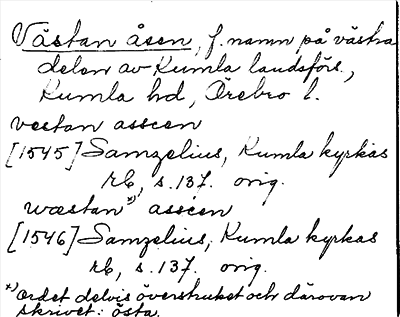 Västan åsen, f. namn på västra
delen av Kumla landsförs.,
Kumla hd, Örebro l.
vestan asseen
[1545] Samzelius, Kumla kyrkas
rb, s. 137. orig.
wæstan*) asseen
[1546] Samzelius, Kumla kyrkas
rb, s. 137. orig.
*) ordet delvis överstruket och därovan
skrivet: östa.